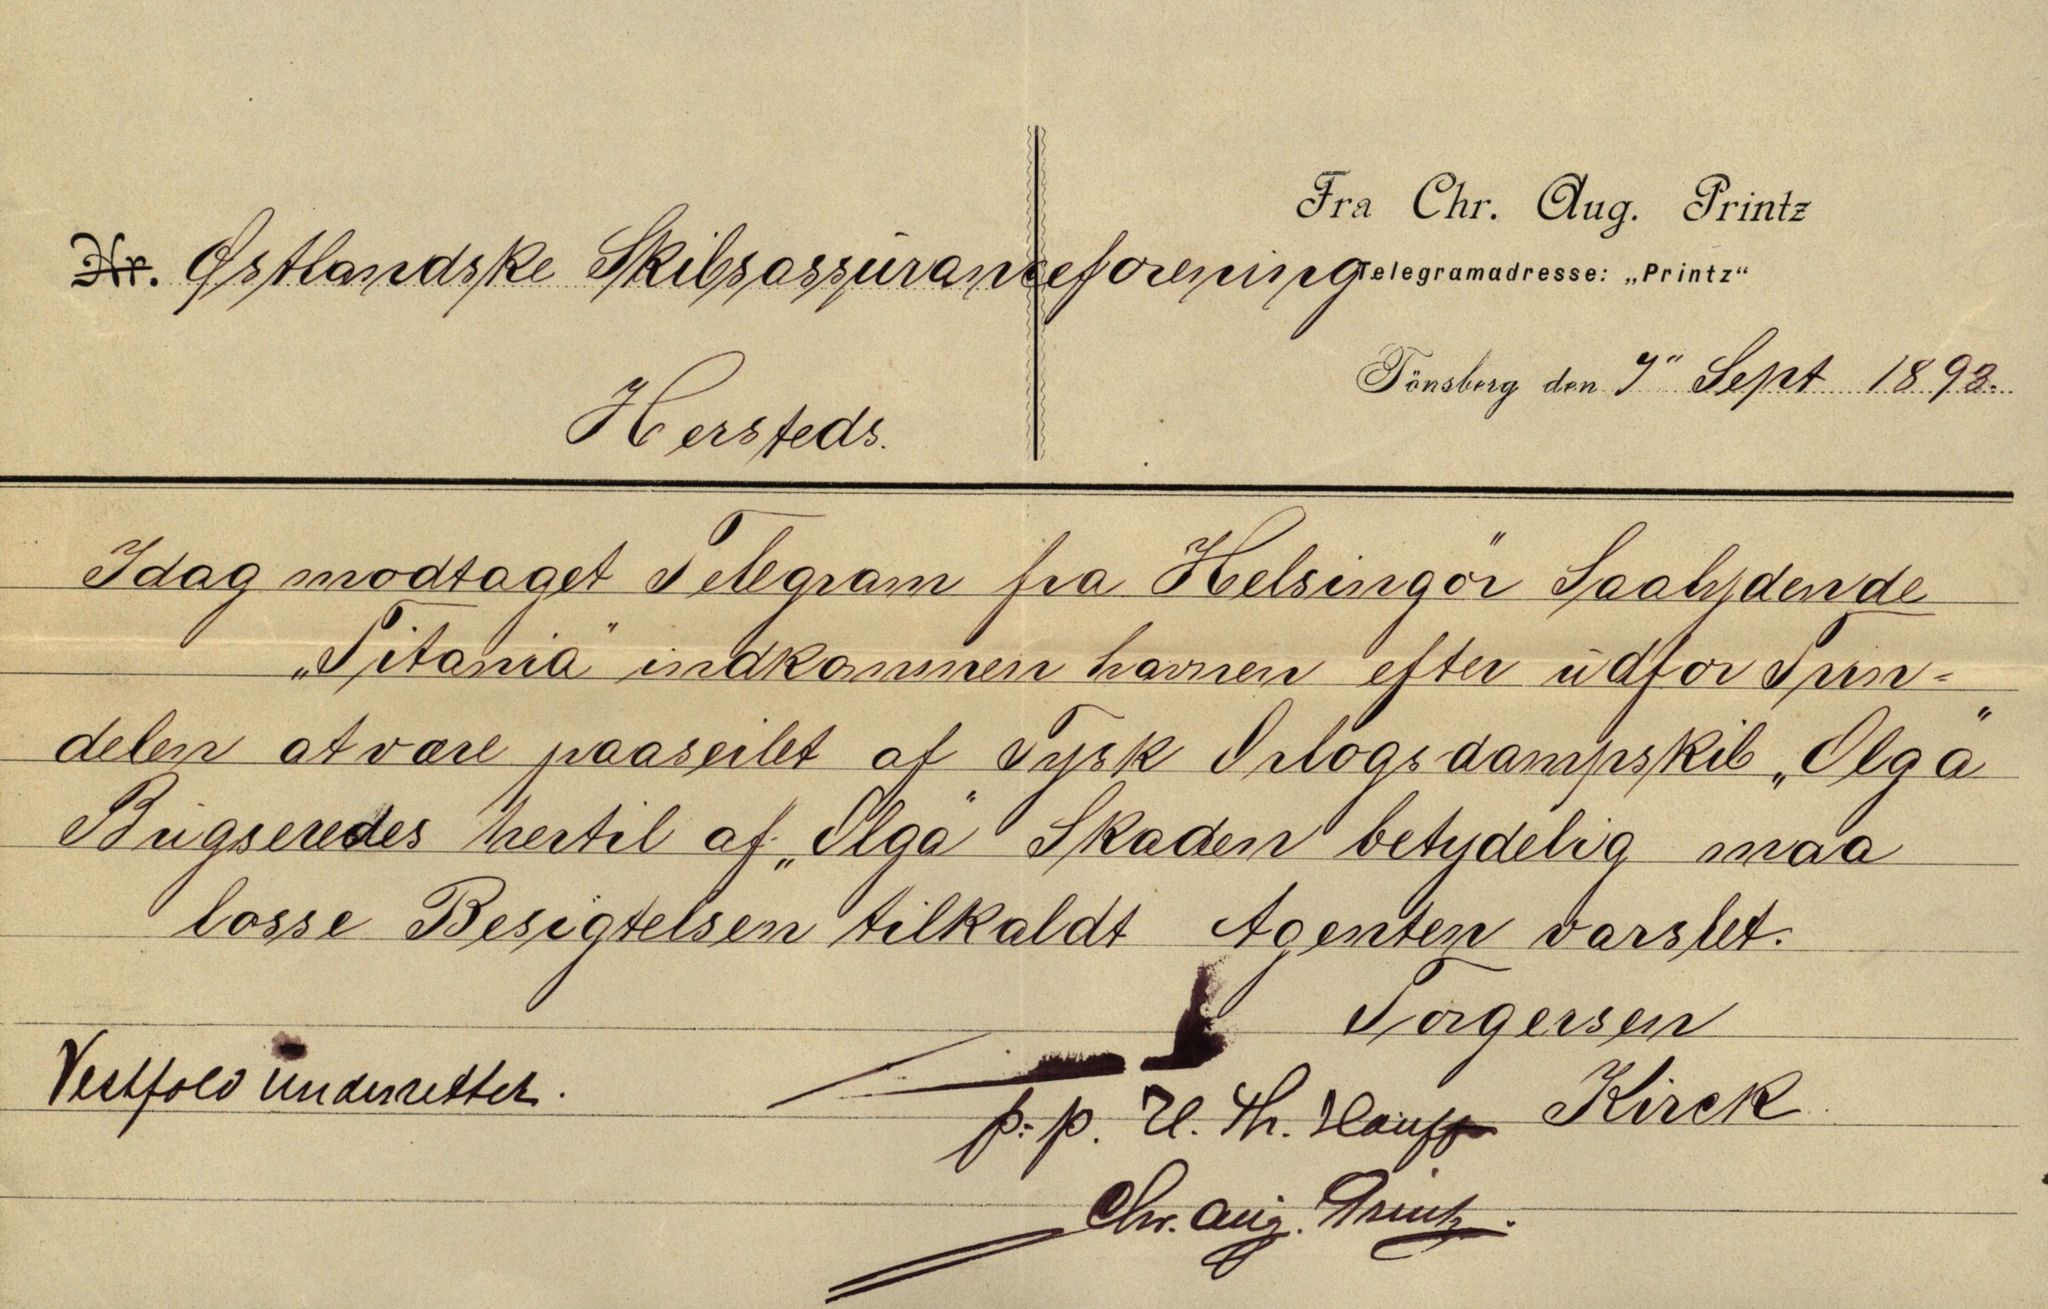 Fra Chr. Aug. Printz
Hr. Østlandske Skibsassuranceforening
Telegramadresse: „Printz“
Tönsberg den 7" Sept 1893.
Hersteds.
Idag modtaget Telegram fra Helsingör Saalydende
„Titania" indkommen havnen efter udfor Trin-
delen at være paaseilet af Tysk Orlogsdampskib „Olga"
Bugseredes hertil af „Olga" Skaden betydelig maa
losse Besigtelsen tilkaldt Agenten varslet.
Torgersen
Vestfold underrettet.
p.p. Kirck
Chr. Aug. Printz.